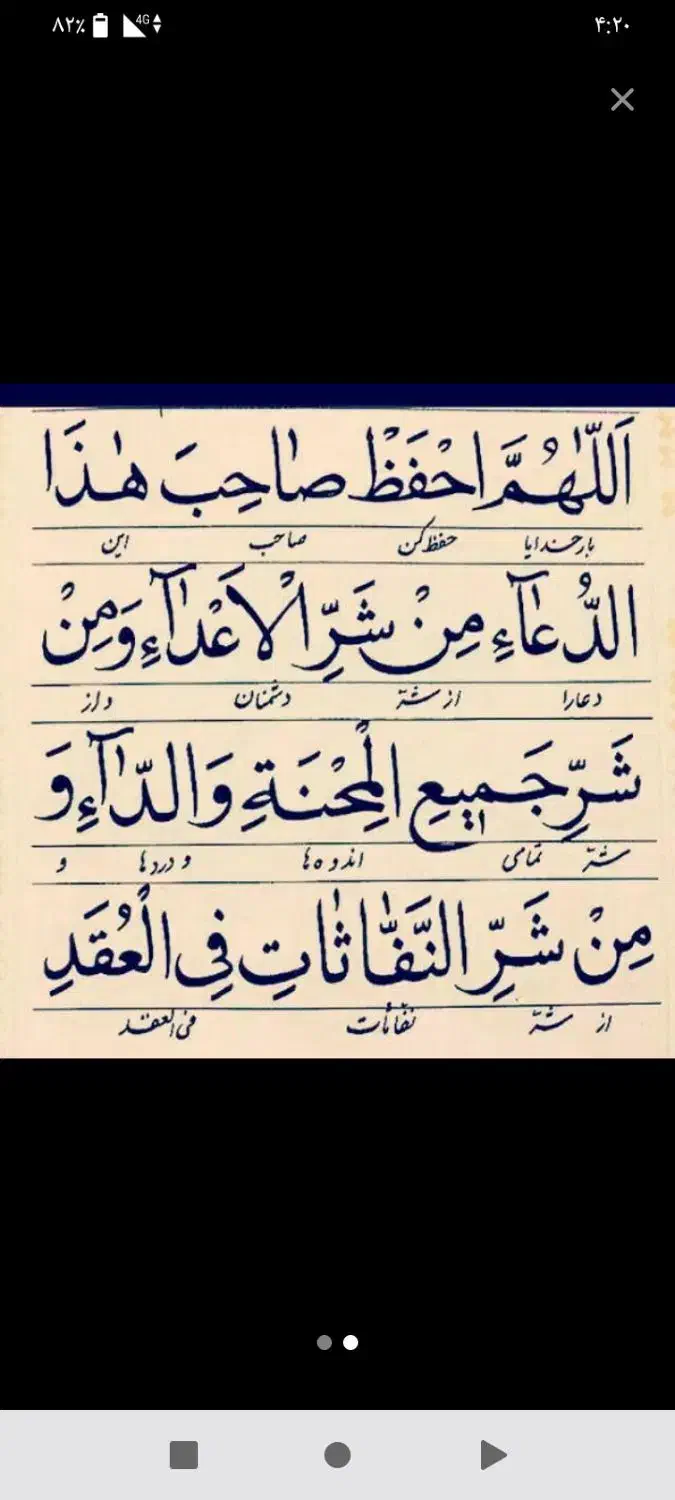 ۸۲٪ 4G ۴:۲۰
اَللّٰهُمَّ احْفَظْ صٰاحِبَ هٰذَا
بارخدایا حفظ کن صاحب این
الدُّعٰآءِ مِنْ شَرِّ الْاَعْدٰآءِ وَمِنْ
دعارا از شرّ دشمنان و از
شَرِّ جَمیعِ الْمِحْنَةِ وَالدّٰآءِ وَ
شرّ تمامی اندوه‌ها و دردها و
مِنْ شَرِّ النَّفّٰاثٰاتِ فِی الْعُقَدِ
از شرّ نفّاثات فی العقد